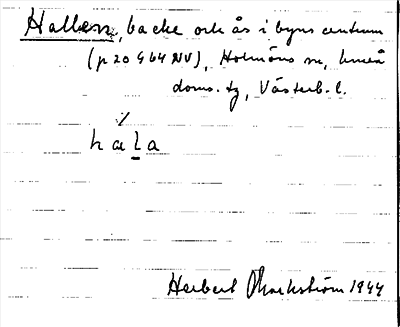 Hallen, backe och ås i byns centrum
(p 20 G 64 NV), Holmöns sn, Umeå
doms. tg, Västerb. l.
hala
Herbert Markström 1944